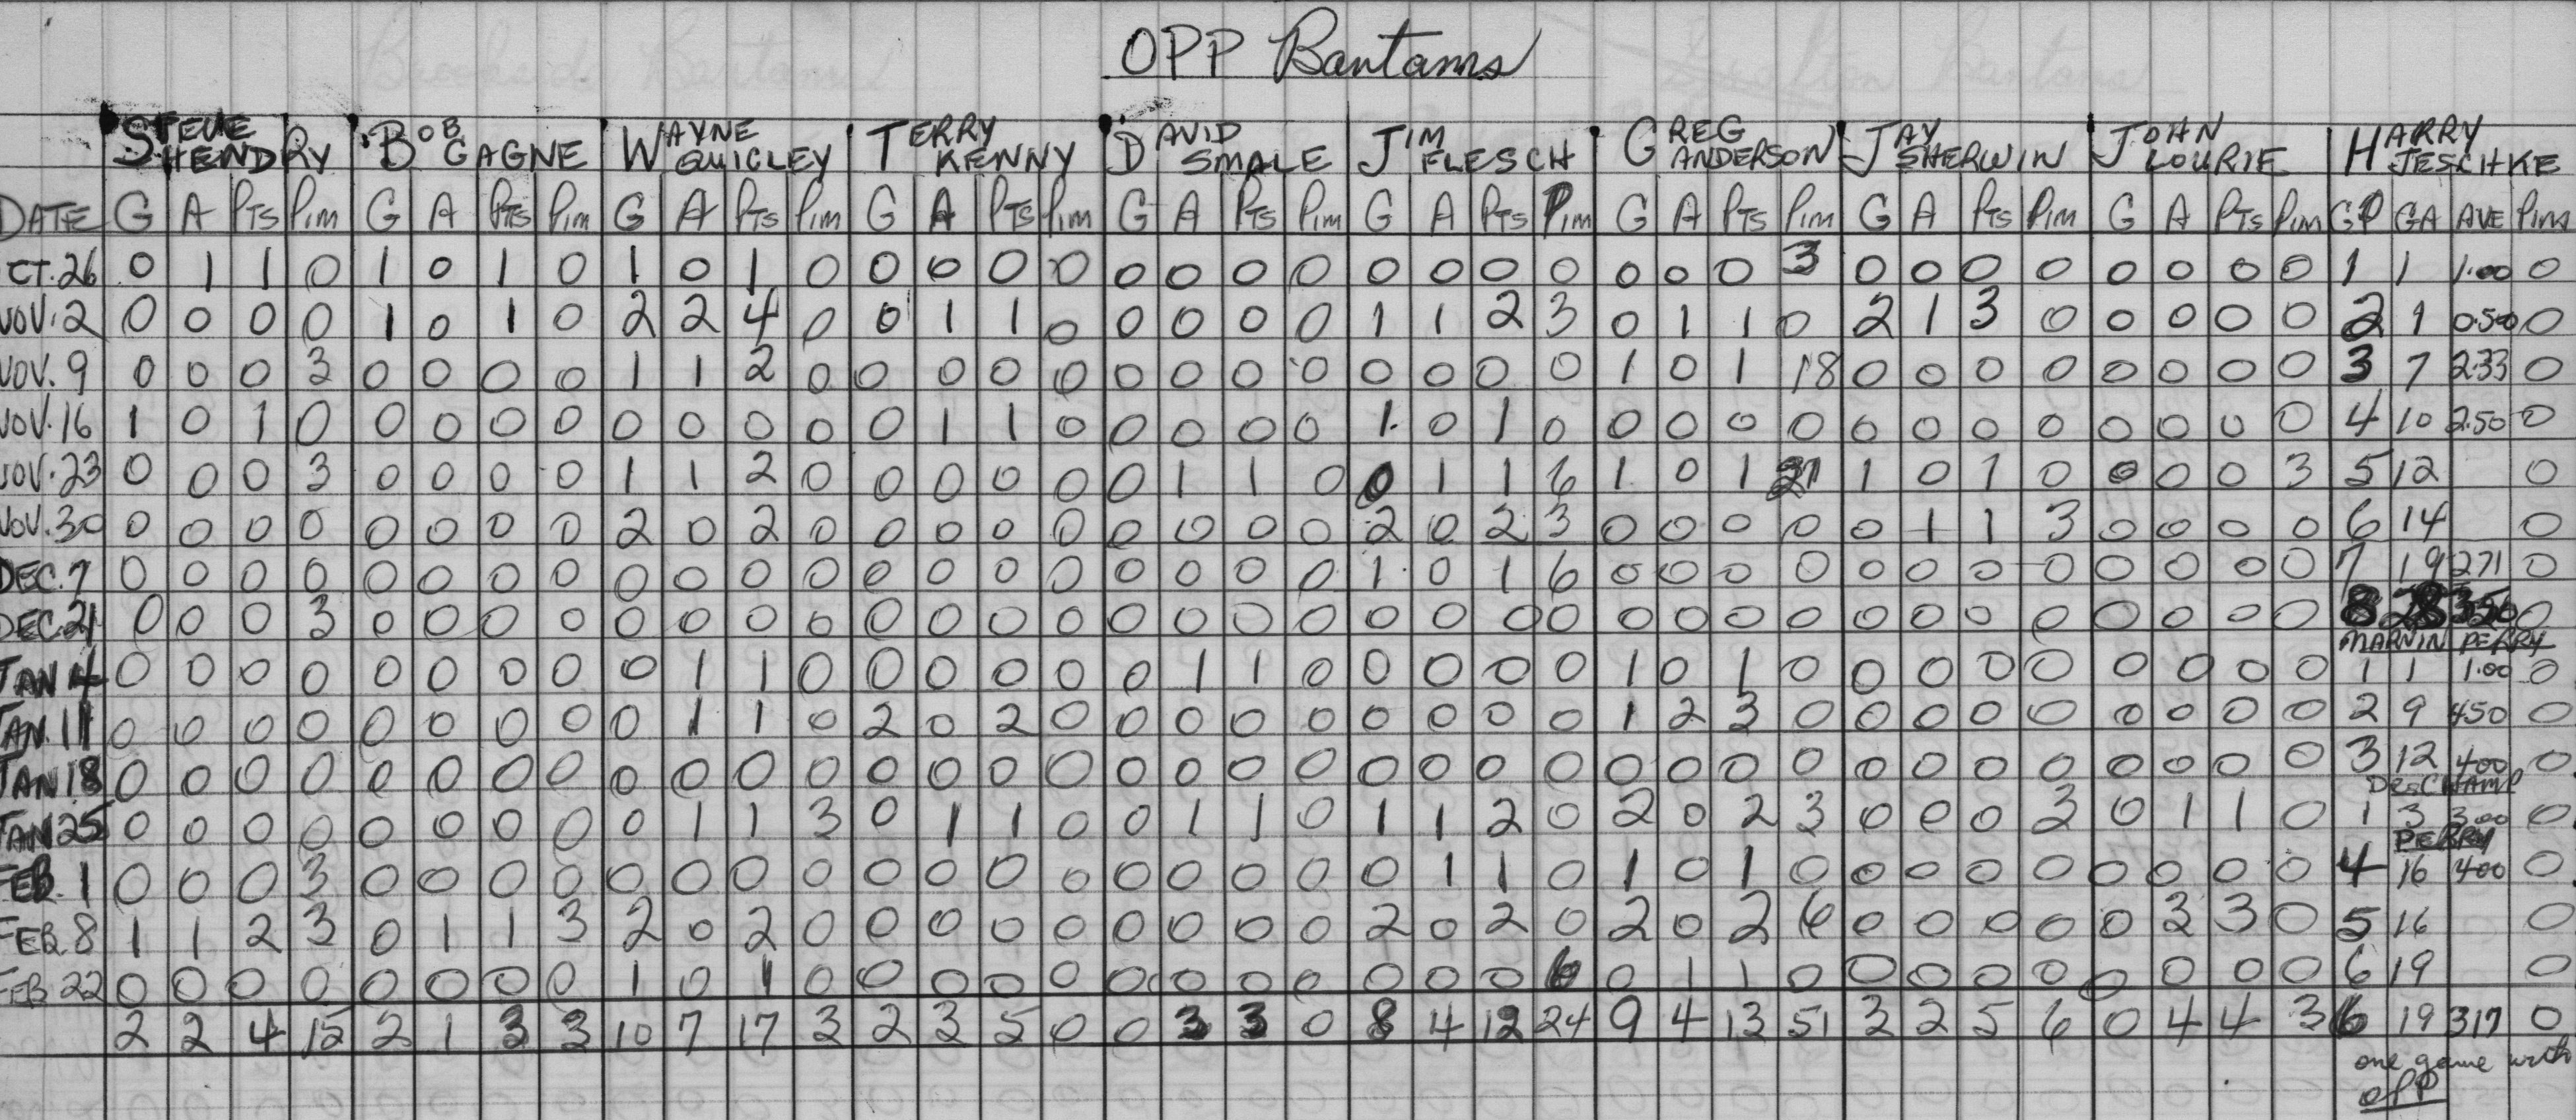 OPP Bantams
STEVE HENDRY BOB GAGNE WAYNE QUIGLEY TERRY KENNY DAVID SMALE JIM FLESCH GREG ANDERSON JAY SHERWIN JOHN LOURIE HARRY JESCHKE
DATE G A PTS PIM G A PTS PIM G A PTS PIM G A PTS PIM G A PTS PIM G A PTS PIM G A PTS PIM G A PTS PIM G A PTS PIM GP GA AVE PIM
CT. 26 0 1 1 0 1 0 1 0 1 0 1 0 0 0 0 0 0 0 0 0 0 0 0 0 0 0 0 3 0 0 0 0 0 0 0 0 1 1 1.00 0
NOV. 2 0 0 0 0 1 0 1 0 2 2 4 0 0 1 1 0 0 0 0 0 1 1 2 3 0 1 1 0 2 1 3 0 0 0 0 0 2 1 0.50 0
NOV. 9 0 0 0 3 0 0 0 0 1 1 2 0 0 0 0 0 0 0 0 0 0 0 0 0 1 0 1 18 0 0 0 0 0 0 0 0 3 7 2.33 0
NOV. 16 1 0 1 0 0 0 0 0 0 0 0 0 0 1 1 0 0 0 0 0 1 0 1 0 0 0 0 0 0 0 0 0 0 0 0 0 4 10 2.50 0
NOV. 23 0 0 0 3 0 0 0 0 1 1 2 0 0 0 0 0 0 1 1 0 0 1 1 6 1 0 1 21 1 0 1 0 0 0 0 3 5 12 0
NOV. 30 0 0 0 0 0 0 0 0 2 0 2 0 0 0 0 0 0 0 0 0 2 0 2 3 0 0 0 0 0 1 1 3 0 0 0 0 6 14 0
DEC. 7 0 0 0 0 0 0 0 0 0 0 0 0 0 0 0 0 0 0 0 0 1 0 1 6 0 0 0 0 0 0 0 0 0 0 0 0 7 19 2.71 0
DEC 21 0 0 0 3 0 0 0 0 0 0 0 0 0 0 0 0 0 0 0 0 0 0 0 0 0 0 0 0 0 0 0 0 0 0 0 0 8 28 3.50 0
MARVIN PERRY
JAN 4 0 0 0 0 0 0 0 0 0 1 1 0 0 0 0 0 0 1 1 0 0 0 0 0 1 0 1 0 0 0 0 0 0 0 0 0 1 1 1.00 0
JAN. 11 0 0 0 0 0 0 0 0 0 1 1 0 2 0 2 0 0 0 0 0 0 0 0 0 1 2 3 0 0 0 0 0 0 0 0 0 2 9 4.50 0
JAN 18 0 0 0 0 0 0 0 0 0 0 0 0 0 0 0 0 0 0 0 0 0 0 0 0 0 0 0 0 0 0 0 0 0 0 0 0 3 12 4.00 0
DESCHAMP
JAN 25 0 0 0 0 0 0 0 0 0 1 1 3 0 1 1 0 0 1 1 0 1 1 2 0 2 0 2 3 0 0 0 3 0 1 1 0 1 3 3.00 0
PERRY
FEB. 1 0 0 0 3 0 0 0 0 0 0 0 0 0 0 0 0 0 0 0 0 0 1 1 0 1 0 1 0 0 0 0 0 0 0 0 0 4 16 4.00 0
FEB. 8 1 1 2 3 0 1 1 3 2 0 2 0 0 0 0 0 0 0 0 0 2 0 2 0 2 0 2 6 0 0 0 0 0 3 3 0 5 16 0
FEB 22 0 0 0 0 0 0 0 0 1 0 1 0 0 0 0 0 0 0 0 0 0 0 0 6 0 1 1 0 0 0 0 0 0 0 0 0 6 19 0
2 2 4 15 2 1 3 3 10 7 17 3 2 3 5 0 0 3 3 0 8 4 12 24 9 4 13 51 3 2 5 6 0 4 4 3 6 19 317 0
one game with
OPP